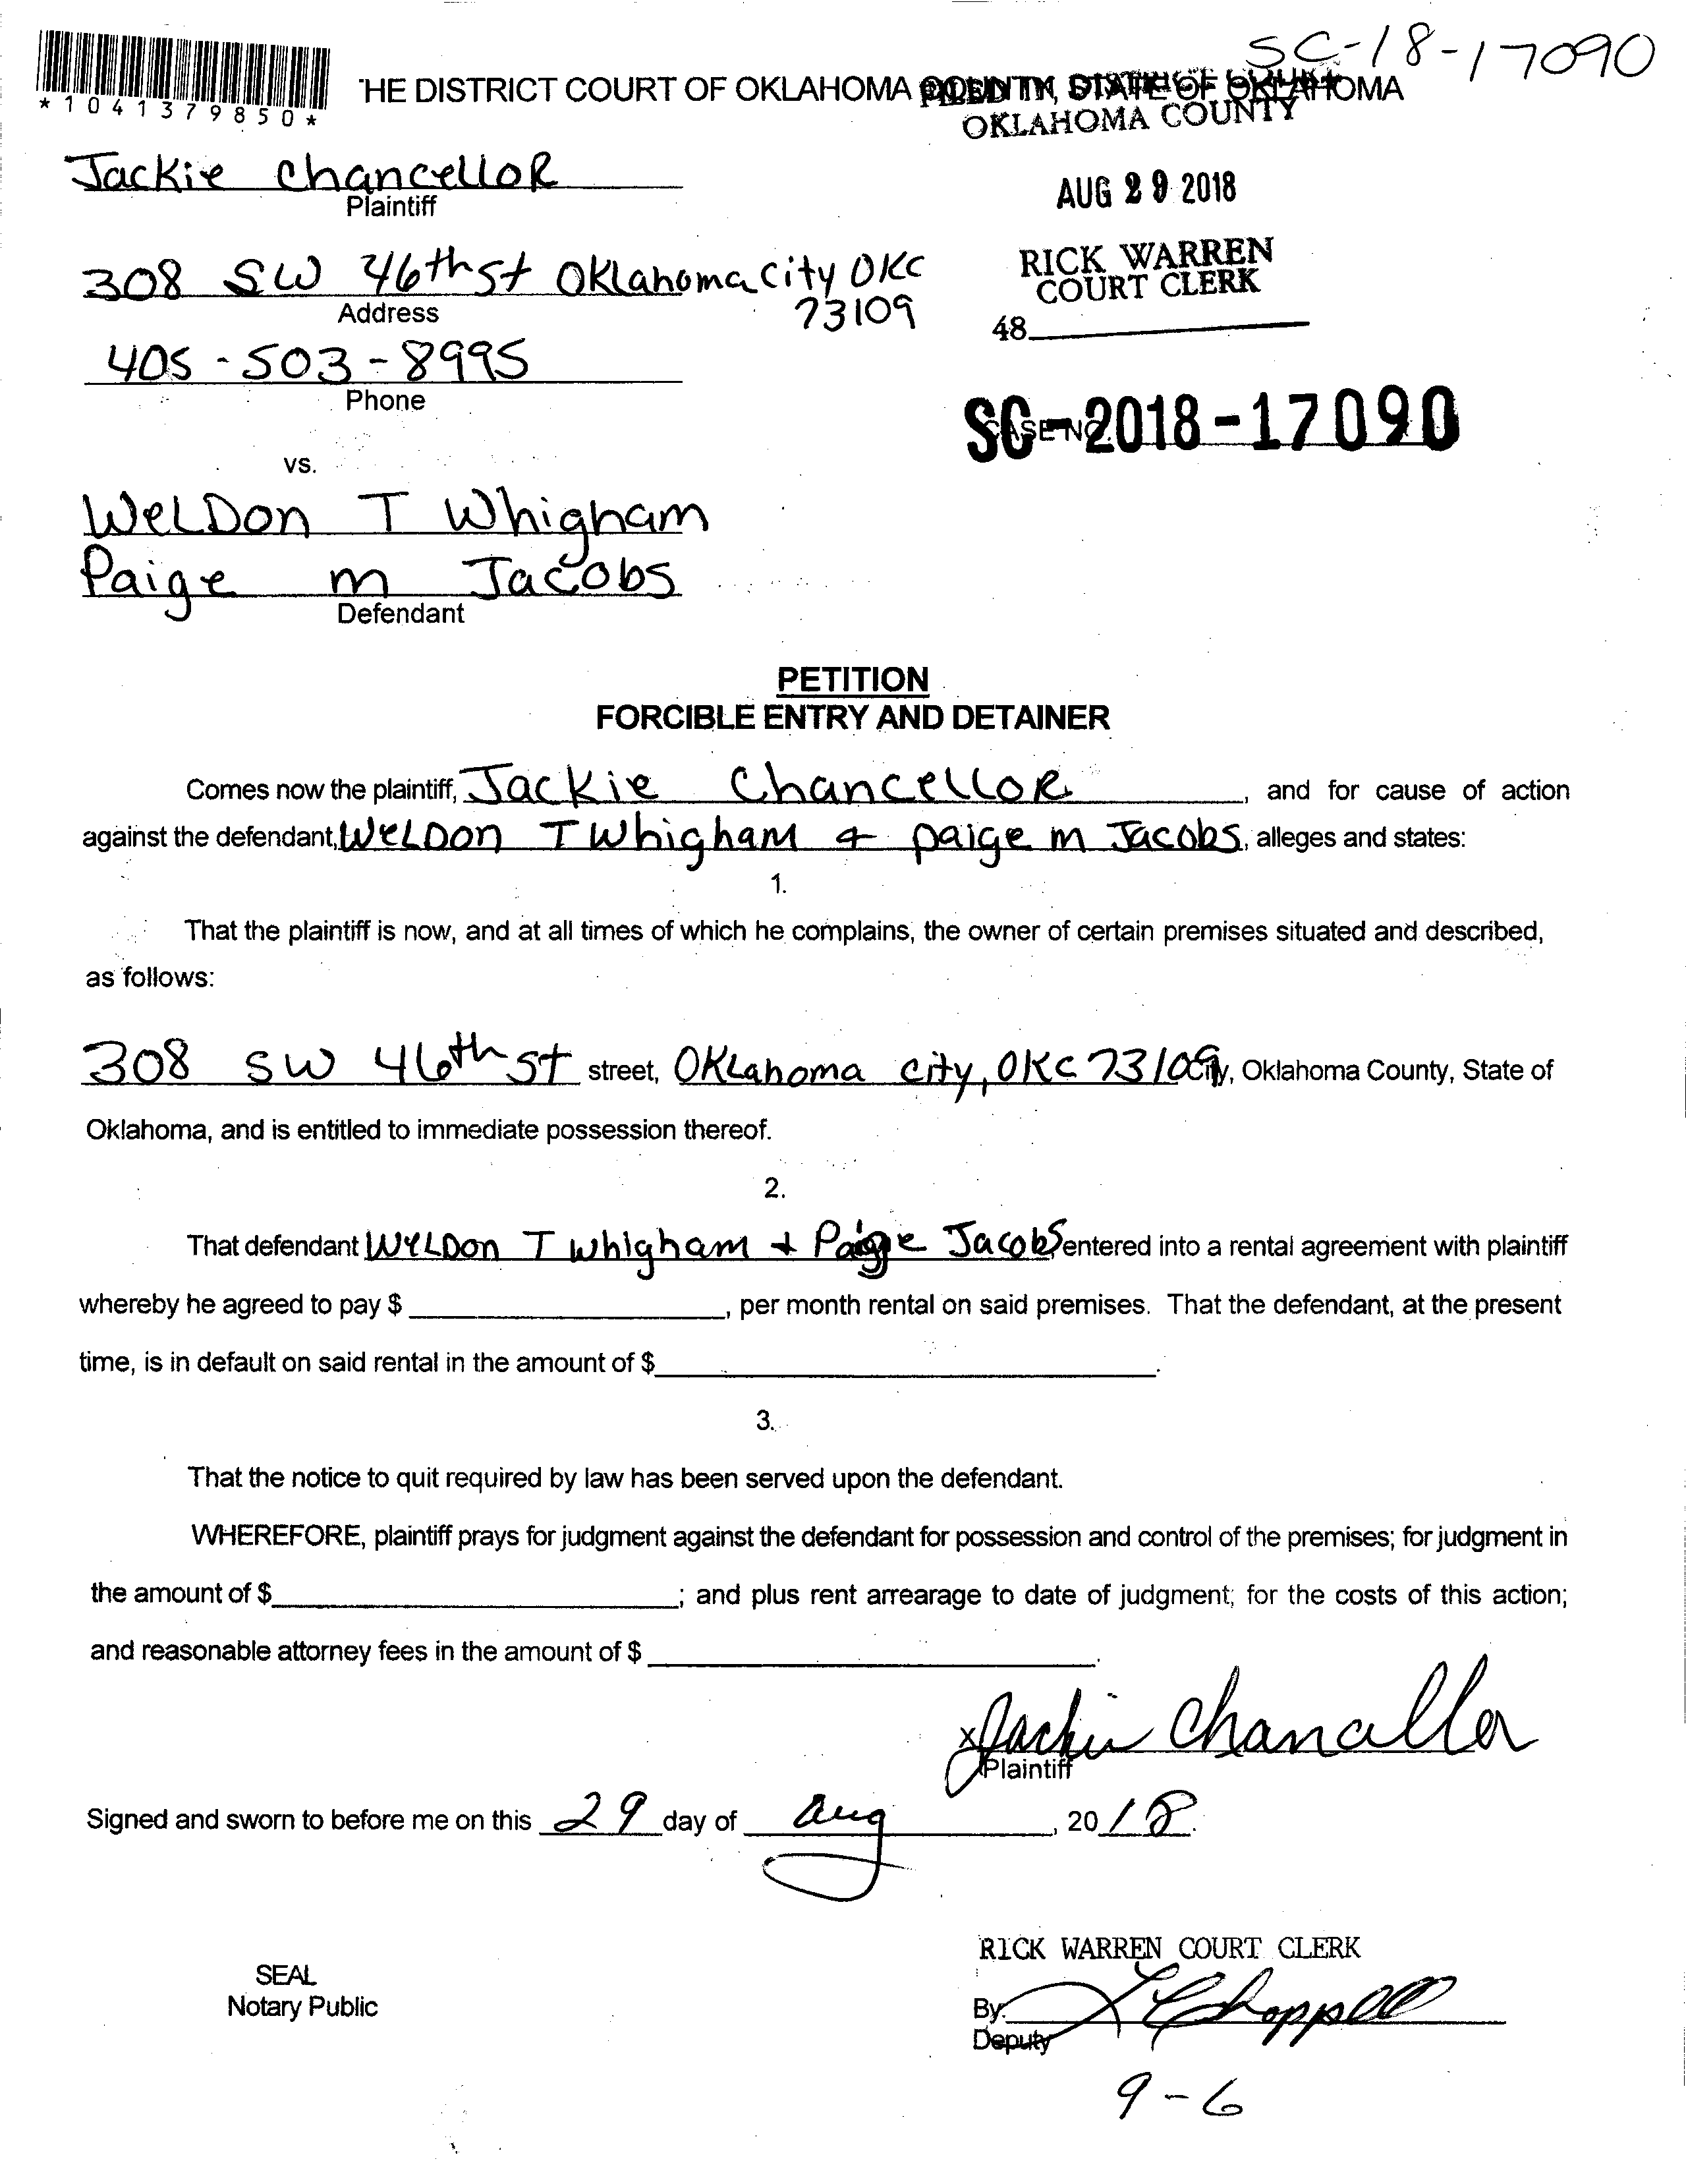 SC-18-17090
*1041379850*
THE DISTRICT COURT OF OKLAHOMA COUNTY, STATE OF OKLAHOMA
FILED IN DISTRICT COURT
OKLAHOMA COUNTY
Jackie Chancellor
Plaintiff
AUG 29 2018
308 SW 46th st Oklahoma City OKC
73109
Address
RICK WARREN
COURT CLERK
48
405-503-8995
Phone
CASE NO.
SC-2018-17090
vs.
WeLDon T Whigham
Paige m Jacobs
Defendant
PETITION
FORCIBLE ENTRY AND DETAINER
Comes now the plaintiff, Jackie Chancellor, and for cause of action
against the defendant, WeLDon T Whigham + paige m Jacobs, alleges and states:
1.
That the plaintiff is now, and at all times of which he complains, the owner of certain premises situated and described,
as follows:
308 SW 46th st street, Oklahoma city, OKC 73109 City, Oklahoma County, State of
Oklahoma, and is entitled to immediate possession thereof.
2.
That defendant WeLDon T Whigham + Paige Jacobs entered into a rental agreement with plaintiff
whereby he agreed to pay $ , per month rental on said premises. That the defendant, at the present
time, is in default on said rental in the amount of $ .
3.
That the notice to quit required by law has been served upon the defendant.
WHEREFORE, plaintiff prays for judgment against the defendant for possession and control of the premises; for judgment in
the amount of $ ; and plus rent arrearage to date of judgment; for the costs of this action;
and reasonable attorney fees in the amount of $ .
x Jackie Chancellor
Plaintiff
Signed and sworn to before me on this 29 day of aug, 2018.
RICK WARREN COURT CLERK
SEAL
Notary Public
By:
Deputy
9-6